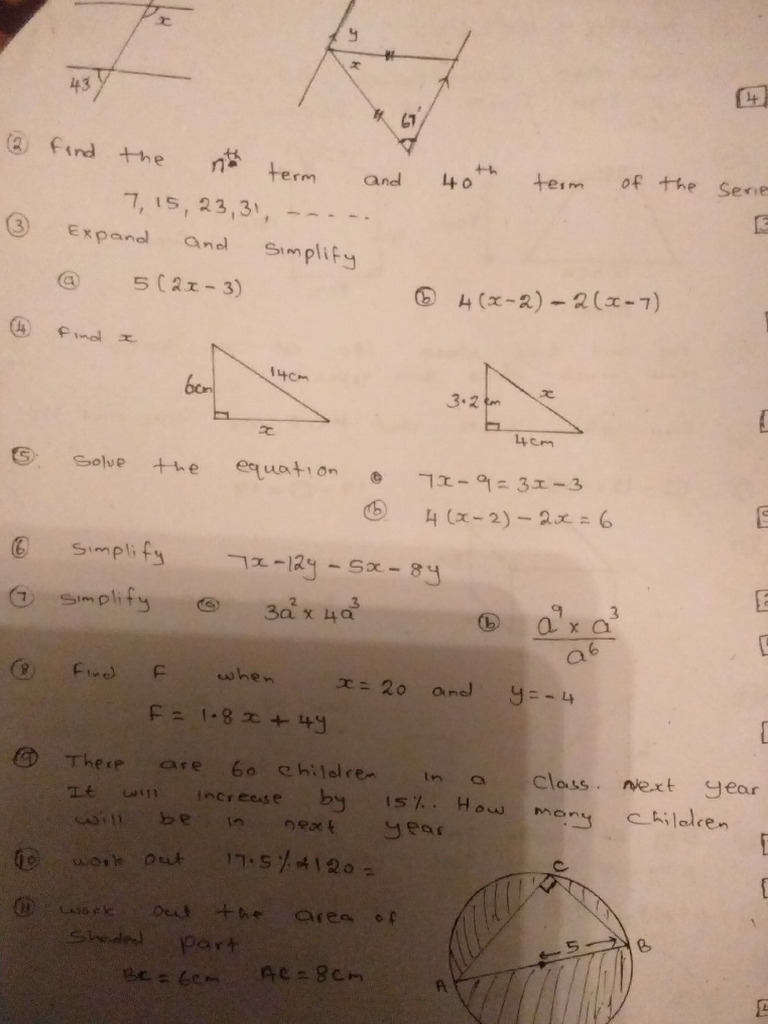 x
43
y
x
67°
4
② Find the nth term and 40th term of the Serie
7, 15, 23, 31, - - - - -
③ Expand and Simplify
ⓐ 5(2x-3) ⓑ 4(x-2) - 2(x-7)
④ Find x
6cm 14cm x
3.2cm x 4cm
⑤ Solve the equation 7x-9=3x-3
ⓑ 4(x-2)-2x=6
⑥ Simplify 7x-12y-5x-8y
⑦ Simplify ⓐ 3a² x 4a³ ⓑ a⁹ x a³
a⁶
⑧ Find F when x=20 and y=-4
F = 1.8x + 4y
⑨ There are 60 children in a class. Next year
It will increase by 15%. How many children
will be in next year
⑩ Work out 17.5% of 120 =
⑪ Work out the area of
Shaded part
BC = 6cm AC = 8cm
C
5
B
A